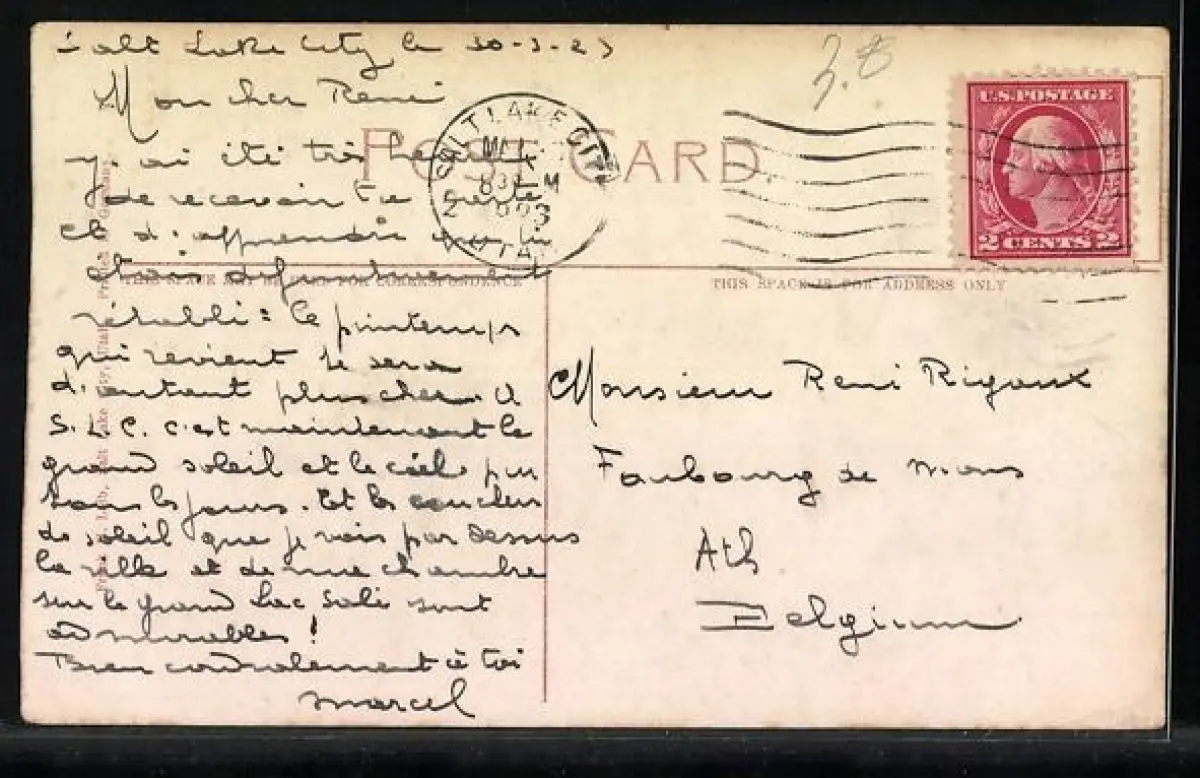 Salt Lake City le 30-3-23
Mon cher René
POST CARD
SALT LAKE CITY
UTAH
U.S. POSTAGE
2 CENTS 2
J'ai été très heureux
de recevoir ta carte
et d'apprendre que tu
étais définitivement
THIS SPACE MAY BE USED FOR CORRESPONDENCE
THIS SPACE IS FOR ADDRESS ONLY
rétabli : le printemps
qui revient te sera
d'autant plus cher. A
S.L.C. c'est maintenant le
grand soleil et le ciel pur
tous les jours. Et les couchers
de soleil que je vois par dessus
la ville et de ma chambre
sur le grand Lac Salé sont
admirables !
Bien cordialement à toi
Marcel
Monsieur René Rigaux
Faubourg de Mons
Ath
Belgium